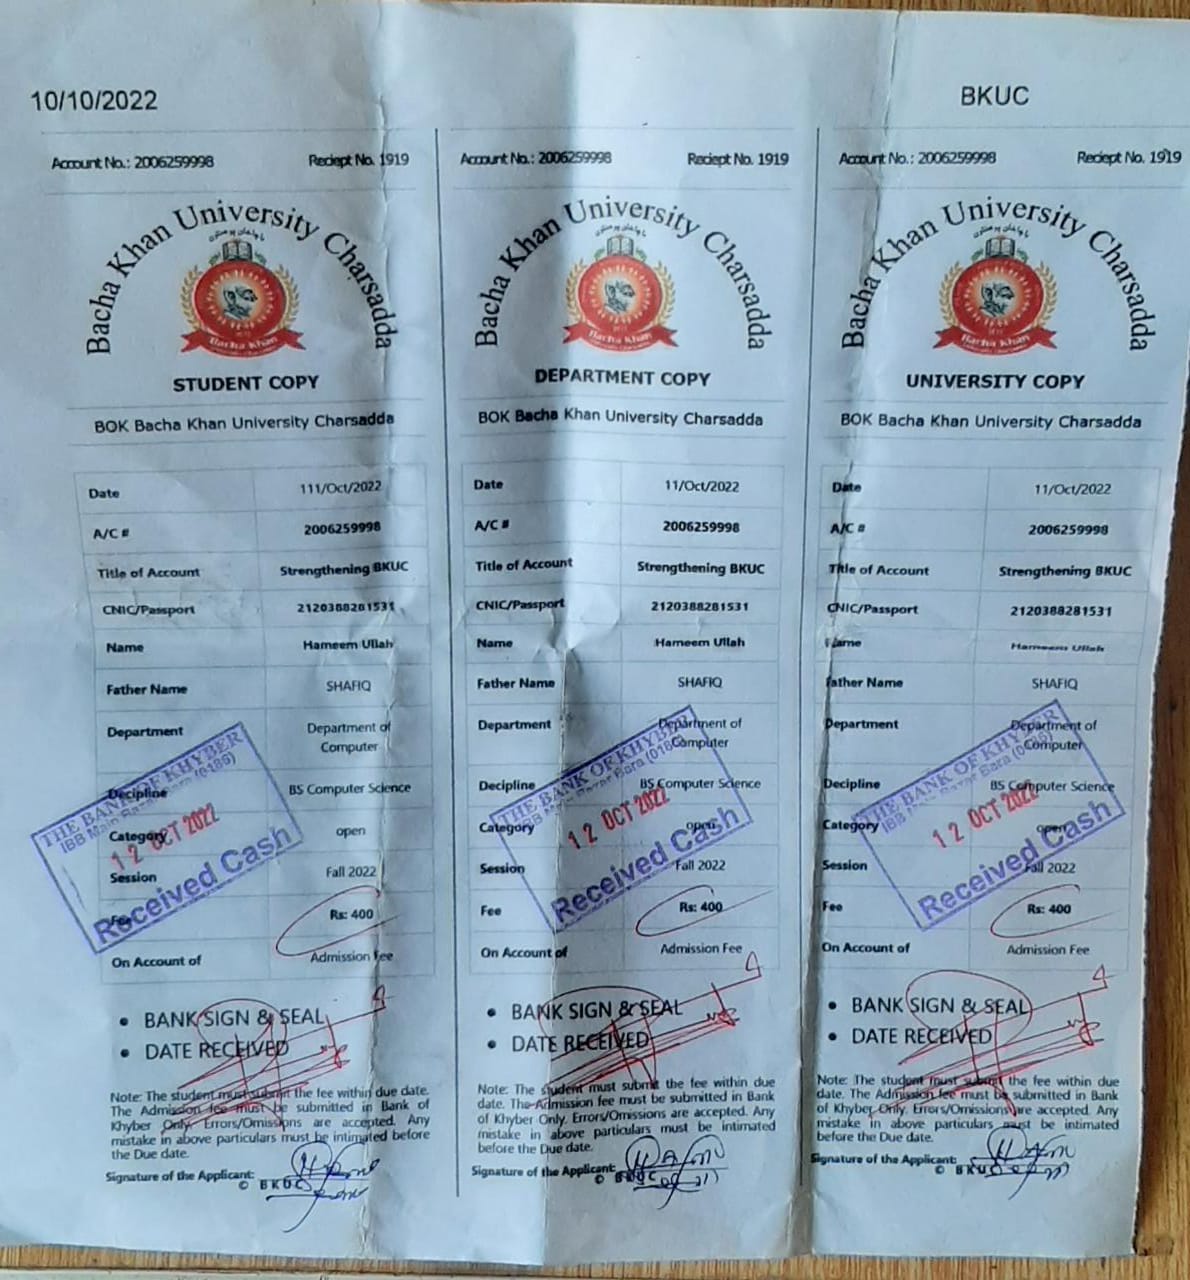 10/10/2022
BKUC
Account No.: 2006259998 Reciept No. 1919
Bacha Khan University Charsadda
Bacha Khan
STUDENT COPY
BOK Bacha Khan University Charsadda
Date 111/Oct/2022
A/C # 2006259998
Title of Account Strengthening BKUC
CNIC/Passport 2120388281531
Name Hameem Ullah
Father Name SHAFIQ
Department Department of
Computer
Decipline BS Computer Science
Category open
Session Fall 2022
Fee Rs: 400
On Account of Admission Fee
THE BANK OF KHYBER
IBB Main Bazar Bara (0186)
12 OCT 2022
Received Cash
• BANK SIGN & SEAL
• DATE RECEIVED
Note: The student must submit the fee within due date.
The Admission fee must be submitted in Bank of
Khyber Only. Errors/Omissions are accepted. Any
mistake in above particulars must be intimated before
the Due date.
Signature of the Applicant:
© BKUC
Account No.: 2006259998 Reciept No. 1919
Bacha Khan University Charsadda
Bacha Khan
DEPARTMENT COPY
BOK Bacha Khan University Charsadda
Date 11/Oct/2022
A/C # 2006259998
Title of Account Strengthening BKUC
CNIC/Passport 2120388281531
Name Hameem Ullah
Father Name SHAFIQ
Department Department of
Computer
Decipline BS Computer Science
Category open
Session Fall 2022
Fee Rs: 400
On Account of Admission Fee
THE BANK OF KHYBER
IBB Main Bazar Bara (0186)
12 OCT 2022
Received Cash
• BANK SIGN & SEAL
• DATE RECEIVED
Note: The student must submit the fee within due
date. The Admission fee must be submitted in Bank
of Khyber Only. Errors/Omissions are accepted. Any
mistake in above particulars must be intimated
before the Due date.
Signature of the Applicant:
© BKUC
Account No.: 2006259998 Reciept No. 1919
Bacha Khan University Charsadda
Bacha Khan
UNIVERSITY COPY
BOK Bacha Khan University Charsadda
Date 11/Oct/2022
A/C # 2006259998
Title of Account Strengthening BKUC
CNIC/Passport 2120388281531
Name Hameem Ullah
Father Name SHAFIQ
Department Department of
Computer
Decipline BS Computer Science
Category open
Session Fall 2022
Fee Rs: 400
On Account of Admission Fee
THE BANK OF KHYBER
IBB Main Bazar Bara (0186)
12 OCT 2022
Received Cash
• BANK SIGN & SEAL
• DATE RECEIVED
Note: The student must submit the fee within due
date. The Admission fee must be submitted in Bank
of Khyber Only. Errors/Omissions are accepted. Any
mistake in above particulars must be intimated
before the Due date.
Signature of the Applicant:
© BKUC